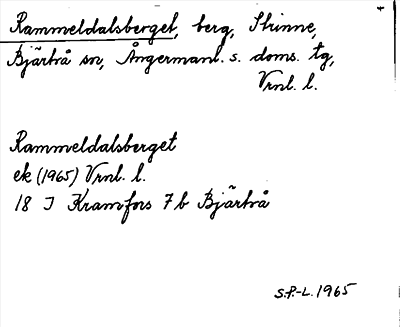 Rammeldalsberget, berg, Skinne,
Bjärtrå sn, Ångermanl. s. doms. tg,
Vrnl. l.
Rammeldalsberget
ek (1965) Vrnl. l.
18 I Kramfors 7 b Bjärtrå
S.P.-L. 1965